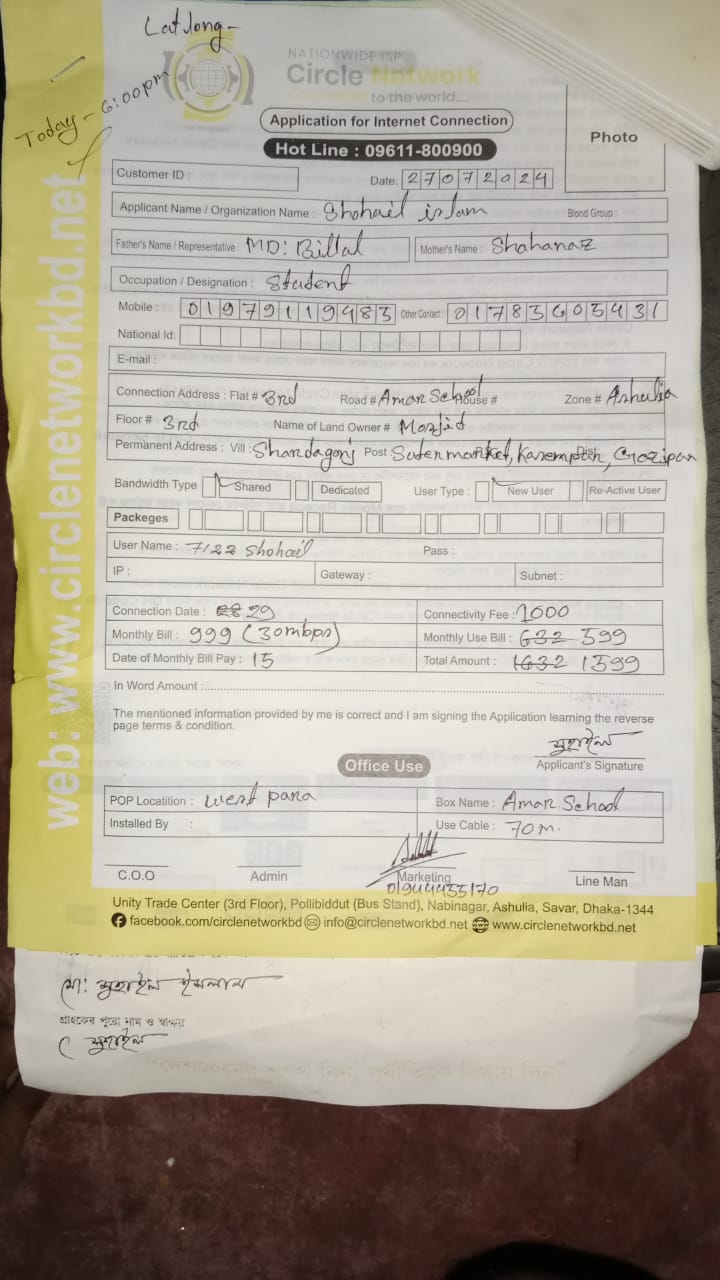 Lat long -
Today - 6:00pm
NATIONWIDE ISP
Circle Network
Connected to the world...
Application for Internet Connection
Hot Line : 09611-800900
Photo
Customer ID :
Date: 27072024
Applicant Name / Organization Name : Shohail islam Blood Group :
Father's Name / Representative : MD: Billal Mother's Name : Shahanaz
Occupation / Designation : Student
Mobile : 01979119483 Other Contact : 01783605431
National Id:
E-mail :
Connection Address : Flat # 3rd Road # Amar School House # Zone # Ashulia
Floor # 3rd Name of Land Owner #
Permanent Address : Vill : Post Dist
Bandwidth Type Shared Dedicated User Type : New User Re-Active User
Packeges
User Name : 7122 Shohail Pass :
IP : Gateway : Subnet :
Connection Date : 28 29 Connectivity Fee : 1000
Monthly Bill : 999 (30mbps) Monthly Use Bill : 632 599
Date of Monthly Bill Pay : 15 Total Amount : 1632 1599
In Word Amount :
The mentioned information provided by me is correct and I am signing the Application learning the reverse
page terms & condition.
সুহাইল
Applicant's Signature
Office Use
POP Locatition : West para Box Name : Amar School
Installed By : Use Cable : 70m.
C.O.O Admin Marketing Line Man
01944455170
Unity Trade Center (3rd Floor), Pollibiddut (Bus Stand), Nabinagar, Ashulia, Savar, Dhaka-1344
facebook.com/circlenetworkbd info@circlenetworkbd.net www.circlenetworkbd.net
web: www.circlenetworkbd.net
মো: সুহাইল ইসলাম
গ্রাহকের পুরো নাম ও স্বাক্ষর
সুহাইল